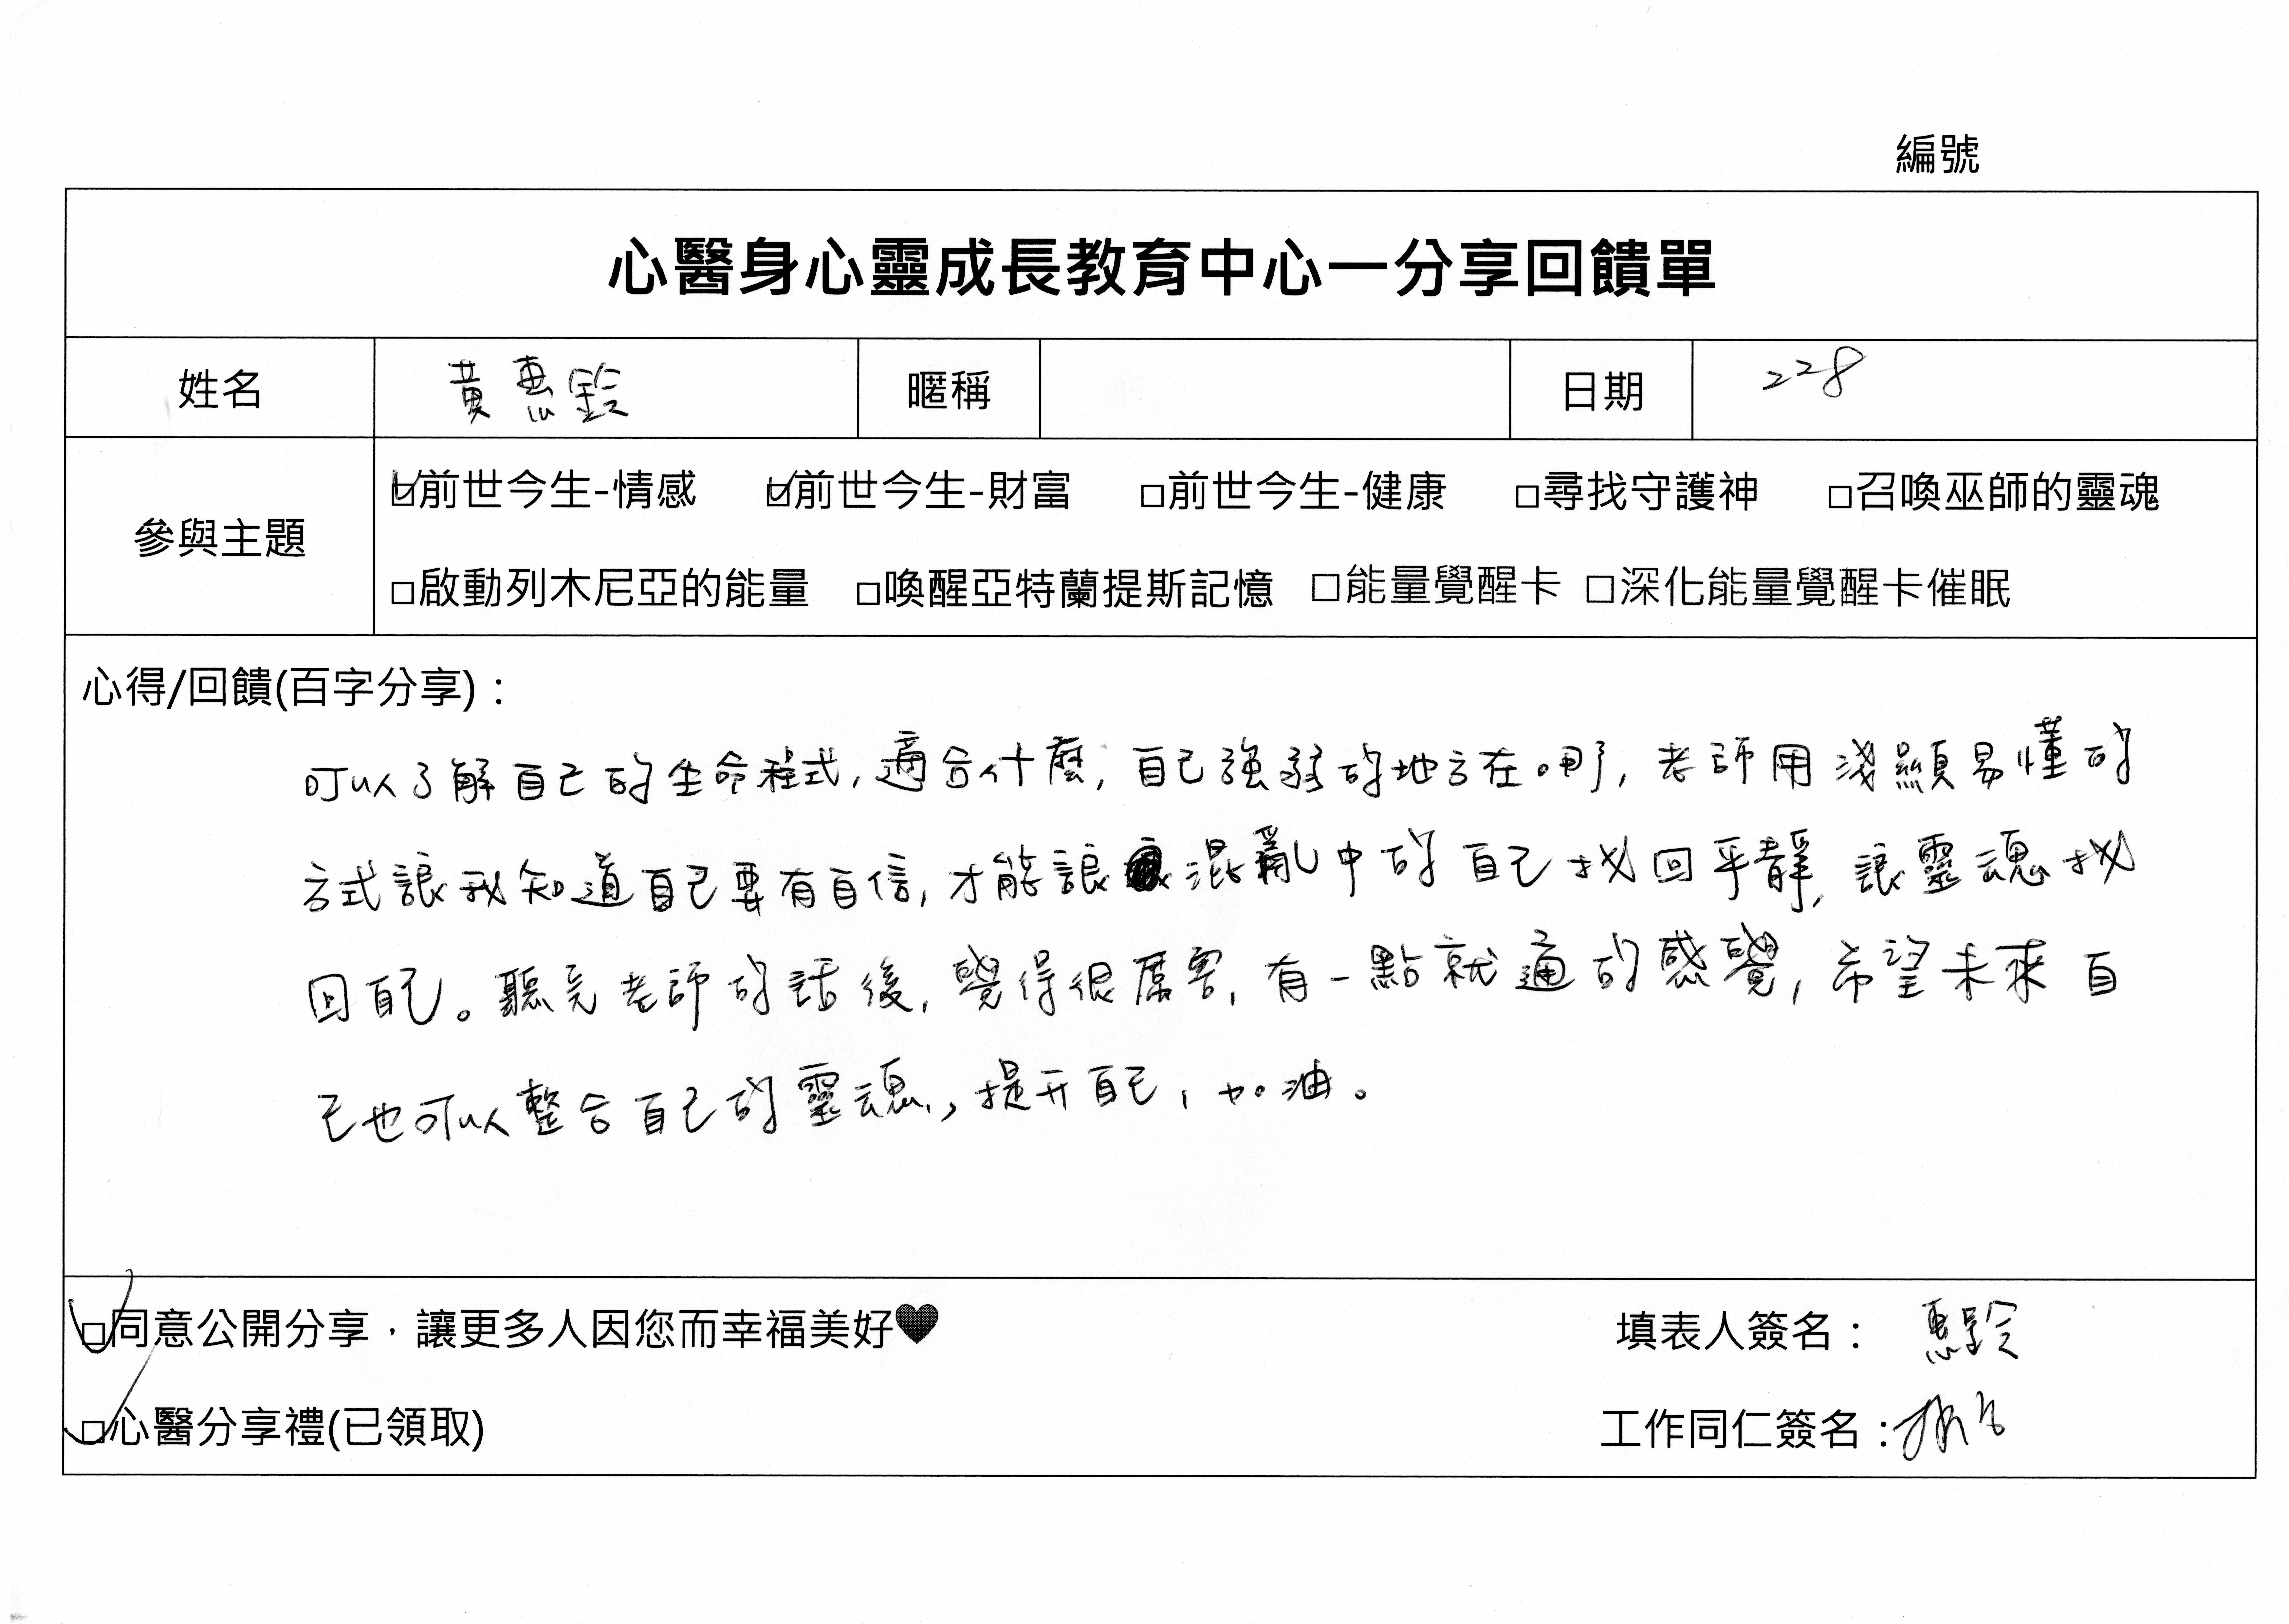 編號
心醫身心靈成長教育中心一分享回饋單
姓名 黃惠鈴 暱稱 日期 228
參與主題
☑前世今生-情感 ☑前世今生-財富 □前世今生-健康 □尋找守護神 □召喚巫師的靈魂
□啟動列木尼亞的能量 □喚醒亞特蘭提斯記憶 □能量覺醒卡 □深化能量覺醒卡催眠
心得/回饋(百字分享)：
可以了解自己的生命程式，適合什麼，自己強弱的地方在哪，老師用淺顯易懂的
方式讓我知道自己要有自信，才能讓混亂中的自己找回平靜，讓靈魂找
回自己。聽完老師的話後，覺得很厲害，有一點就通的感覺，希望未來自
己也可以整合自己的靈魂，提升自己，加油。
☑同意公開分享，讓更多人因您而幸福美好♥ 填表人簽名： 惠鈴
☑心醫分享禮(已領取) 工作同仁簽名：